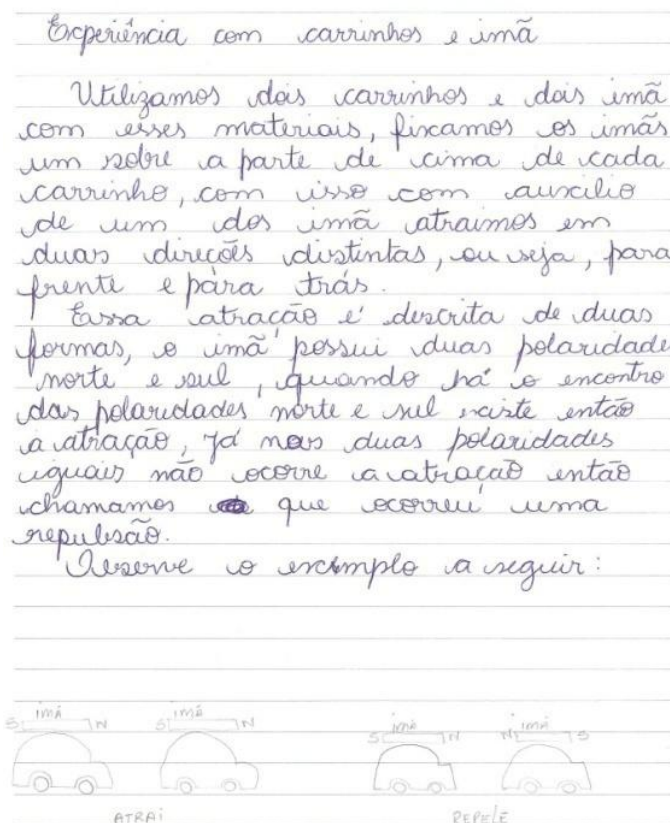 Experiência com carrinhos e imã
Utilizamos dois carrinhos e dois imã
com esses materiais, fixamos os imãs
um sobre a parte de cima de cada
carrinho, com isso com auxcilio
de um dos imã atraimos em
duas direções distintas, ou seja, para
frente e pára trás.
Essa atração é descrita de duas
formas, o imã possui duas polaridade
norte e sul, quando há o encontro
das polaridades norte e sul existe então
a atração, já nas duas polaridades
iguais não ocorre a atração então
chamamos que ocorreu uma
repulsão.
Observe o exemplo a seguir:
S imã N S imã N S imã N N imã S
ATRAI REPELE